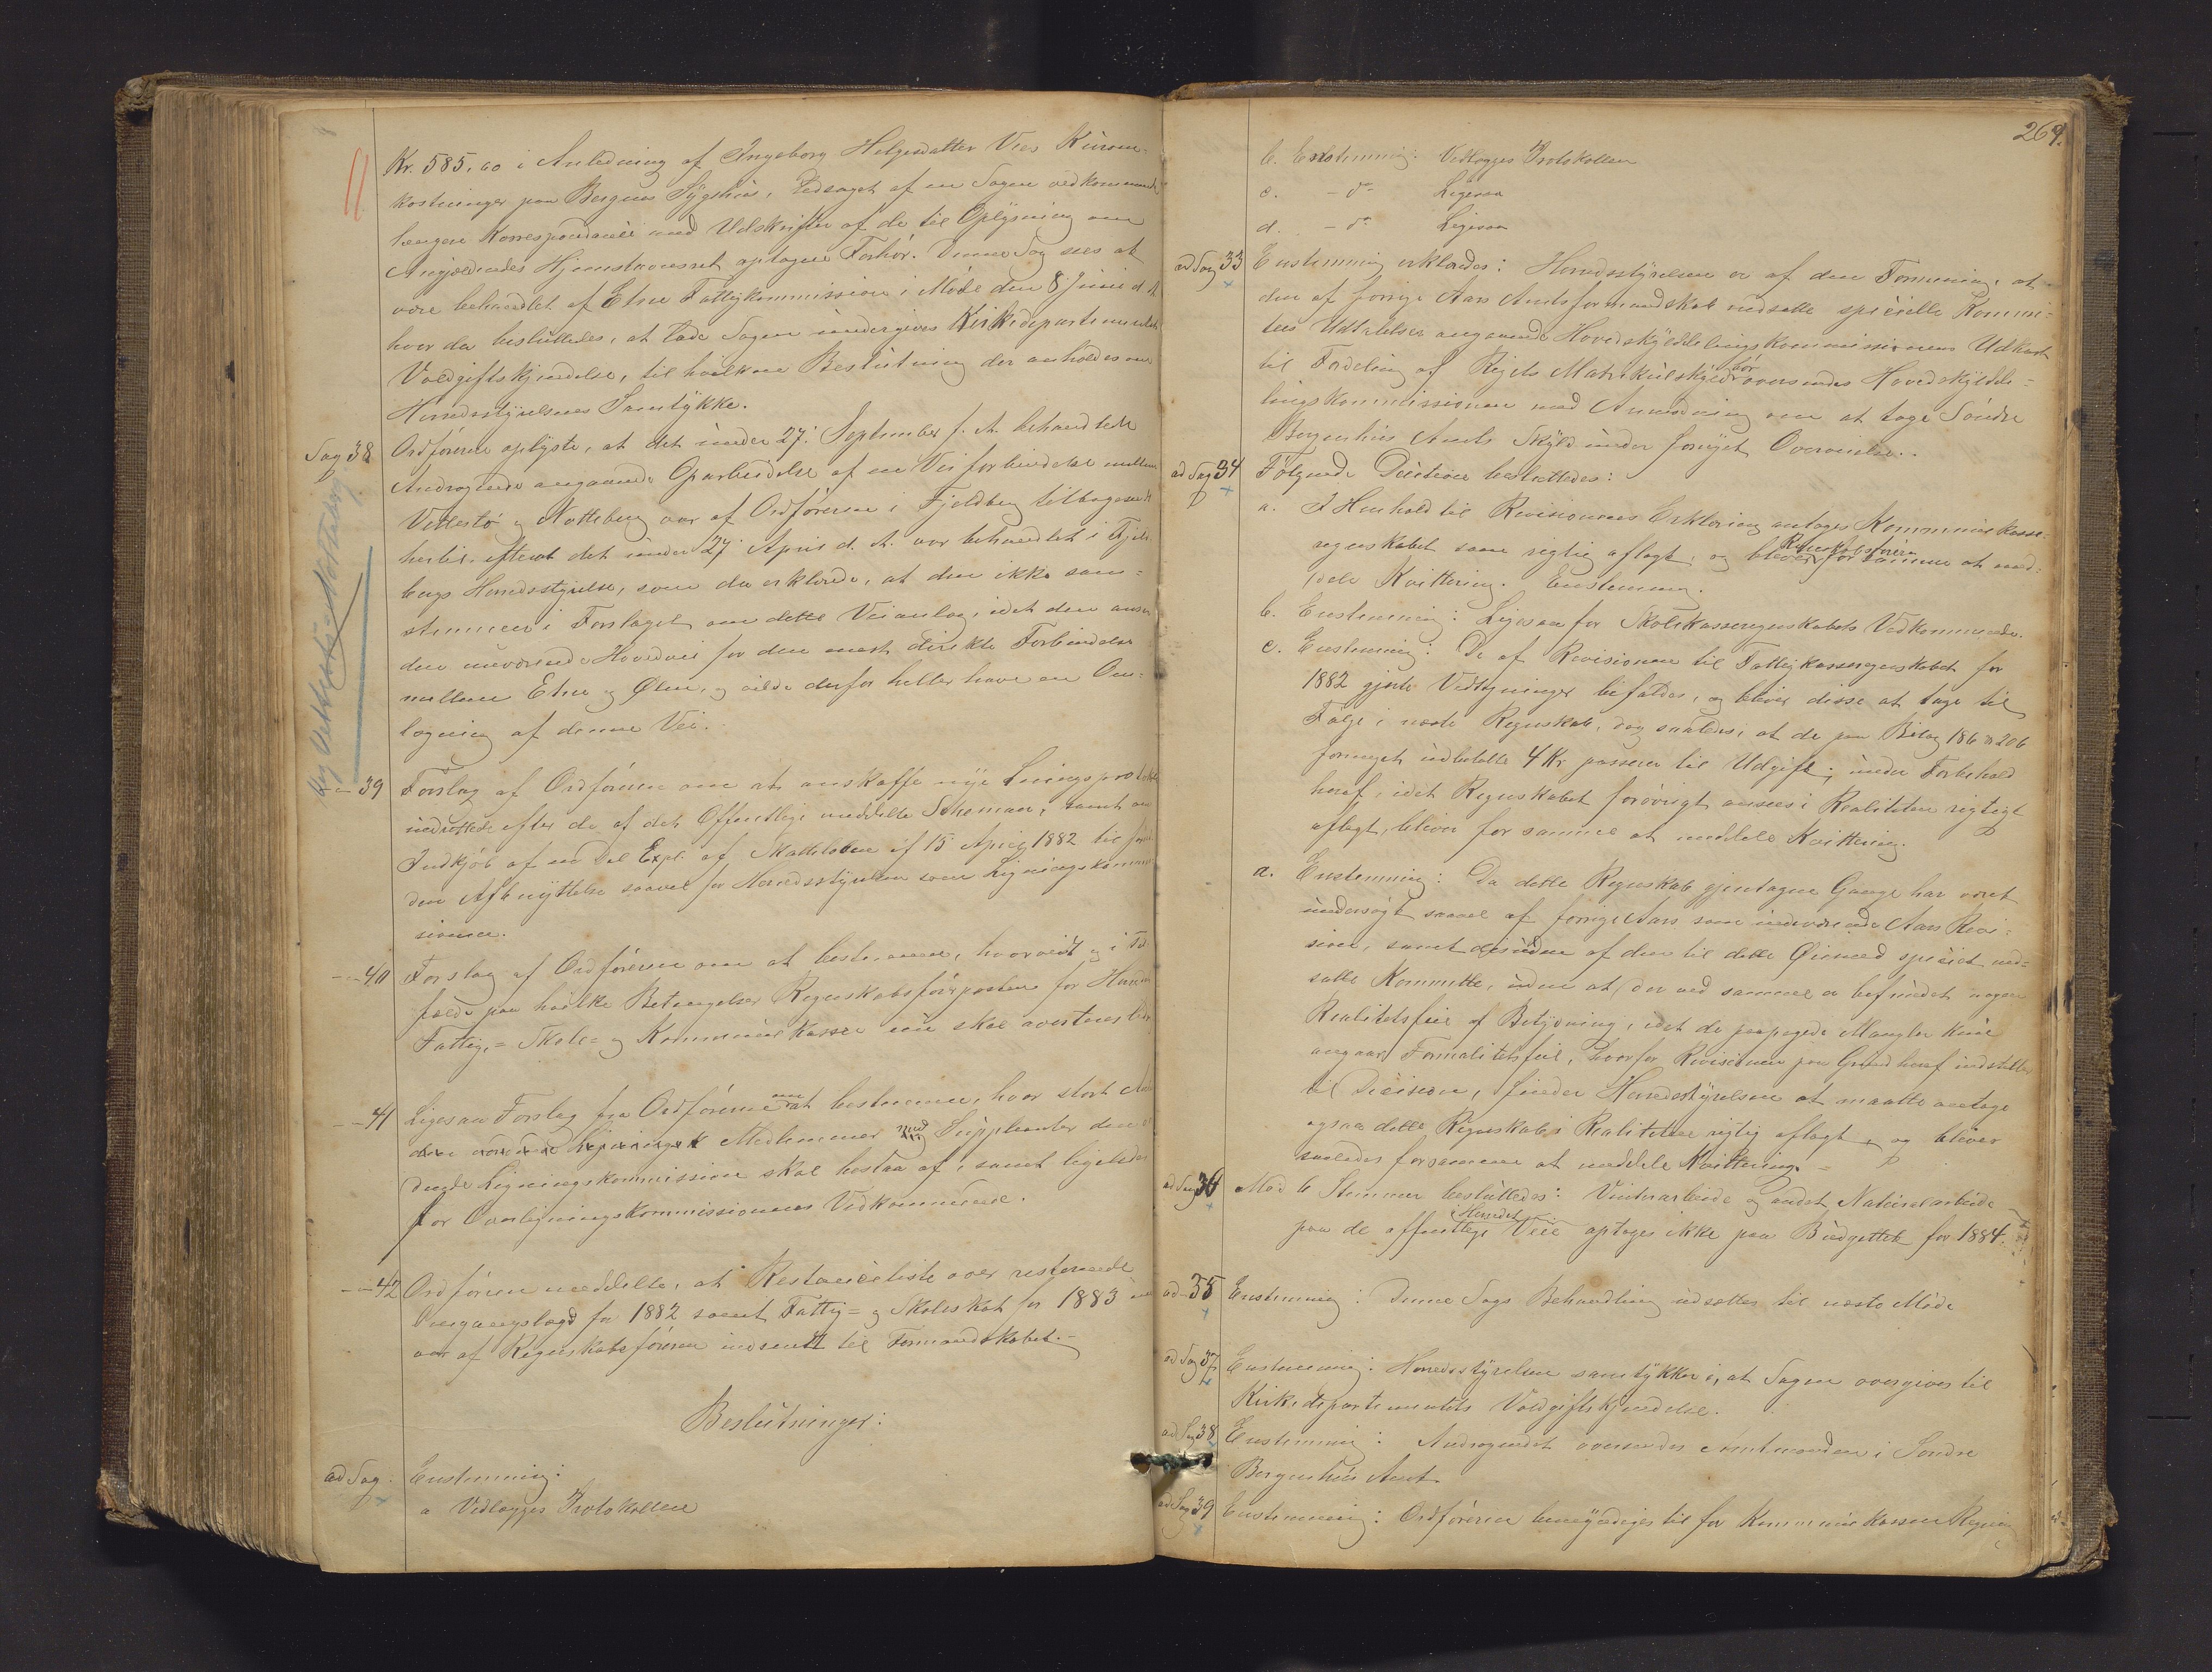 Kr. 585,60 i Anledning af Ingeborg Helgesdatter Vies Kurom-
kostninger paa Bergens Sygehus, ledsaget af en Sagen vedkommende
længere Korrespondance med Udskrifter af de til Oplysning om
Angjældendes Hjemstavnsret optagne Forhør. Denne Sag sees at
være behandlet af Etne Fattigkommission i Møde den 8 Juni d. A.
hvor da besluttedes, at lade Sagen undergives Kirkedepartementets
Voldgiftskjendelse, til hvilken Beslutning der anholdes om
Herredsstyrelsens Samtykke.
Sag 38 Ordføreren oplyste, at det under 27. September f. A. behandlede
Andragende angaaende Oparbeidelse af en Veiforbindelse mellem
Vettestø og Nøtteberg var af Ordføreren i Fjeldberg tilbagesendt
hertil, efterat det under 27. April d. A. var behandlet i Fjeld-
bergs Herredsstyrelse, som da erklærede, at den ikke sam-
stemmer i Forslaget om dette Veianlæg, idet den anser
den nuværende Hovedvei for den mest direkte Forbindelse
mellem Etne og Ølen, og vilde derfor heller have en Om-
lægning af denne Vei.
Ang Vettestø og Nøtteberg
— 39 Forslag af Ordføreren om at anskaffe nye Ligningsprotokoller
indrettede efter de af det Offentlige meddelte Schemaer, samt om
Indkjøb af en Del Expl. af Skatteloven af 15 April 1882 til
den Afbenyttelse saavel for Herredsstyrelsen som Ligningskommis-
sionen.
— 40 Forslag af Ordføreren om at bestemme, hvorvidt og i Til-
fælde paa hvilke Betingelser Regnskabsførerposten for Herredets
Fattig-, Skole- og Kommunekasse nu skal avertres ledig
— 41 Ligesaa Forslag fra Ordføreren om at bestemme, hvor stort An-
Medlemmer med Suppleanter den or-
dinære Ligningskommission skal bestaa af, samt ligeledes
for Overligningskommissionens Vedkommende.
— 42 Ordføreren meddelte, at Restanceliste over resterende
Omgangslægd for 1882 samt Fattig- og Skoleskat for 1883
var af Regnskabsføreren indsendt til Formandskabet.
Beslutninger:
ad Sag Enstemmig:
a Vedlægges Protokollen
269.
b. Enstemmig: Vedlægges Protokollen
c. - do Ligesaa
d. - do Ligesaa
ad Sag 33 Enstemmig erklæredes: Herredsstyrelsen er af den Formening, at
den af forrige Aars Amtsformandskab nedsatte specielle Kommi-
tees Udtalelser angaaende Hovedskylddelingskommissionens Udkast
til Fordeling af Rigets Matrikulskyld bør oversendes Hovedskylddel-
ingskommissionen med Anmodning om at tage Søndre
Bergenhus Amts Skyld under fornyet Overveielse.
ad Sag 34 Følgende Decision besluttedes:
a. I Henhold til Revisionens Erklæring antages Kommunekasse-
regnskabet som rigtig aflagt, og bliver Regnskabsføreren for samme at med-
dele Kvittering. Enstemmig.
b. Enstemmig: Ligesaa for Skolekasseregnskabets Vedkommende.
c. Enstemmig: De af Revisionen til Fattigkasseregnskabet for
1882 gjorte Vedtegninger bifaldes, og bliver disse at tage til
Følge i næste Regnskab, dog saaledes, at de paa Bilag 186 og 206
formeget udbetalte 4 Kr. passerer til Udgift; under Forbehold
heraf, idet Regnskabet forøvrigt ansees i Realiteten rigtigt
aflagt, bliver for samme at meddele Kvittering.
d. Enstemmig: Da dette Regnskab gjentagne Gange har været
undersøgt saavel af forrige Aars som indeværende Aars Revi-
sion, samt desuden af den til dette Øiemed specielt ned-
satte Kommitte, uden at der ved samme er befundet nogen
Realitetsfeil af Betydning, idet de paapegede Mangler kun
angaar Formalitetsfeil, hvorfor Revisionen paa Grund heraf indstiller
til Decision, finder Herredsstyrelsen at maatte antage
ogsaa dette Regnskab i Realiteten rigtig aflagt, og bliver
saaledes for samme at meddele Kvittering.
ad Sag 36 Mod 6 Stemmer besluttedes: Vinterarbeide og andet Naturalarbeide
paa de offentlige Veie i Herredet optages ikke paa Budgettet for 1884.
ad - 35 Enstemmig: Denne Sags Behandling udsættes til næste Møde
ad Sag 37 Enstemmig: Herredsstyrelsen samtykker i, at Sagen overgives til
Kirkedepartementets Voldgiftskjendelse.
ad Sag 38 Enstemmig: Andragendet oversendes Amtmanden i Søndre
Bergenhus Amt.
ad Sag 39 Enstemmig: Ordføreren bemyndiges til for Kommunekassens Regning